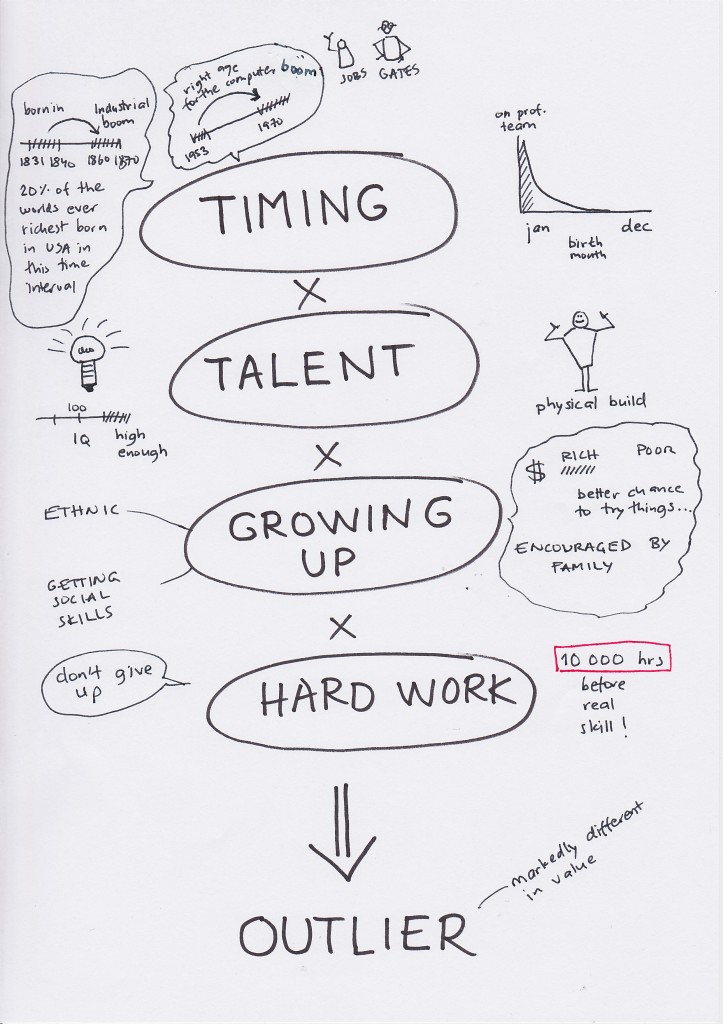 JOBS GATES
right age
for the computer boom
1953
1970
born in
Industrial
boom
1831 1840 1860 1870
20% of the
worlds ever
richest born
in USA in
this time
interval
on prof.
team
jan dec
birth
month
TIMING
X
TALENT
100
IQ high
enough
physical build
X
GROWING
UP
ETHNIC
GETTING
SOCIAL
SKILLS
$ RICH POOR
better chance
to try things...
ENCOURAGED BY
FAMILY
X
don't give
up
HARD WORK
10 000 hrs
before
real
skill!
markedly different
in value
OUTLIER